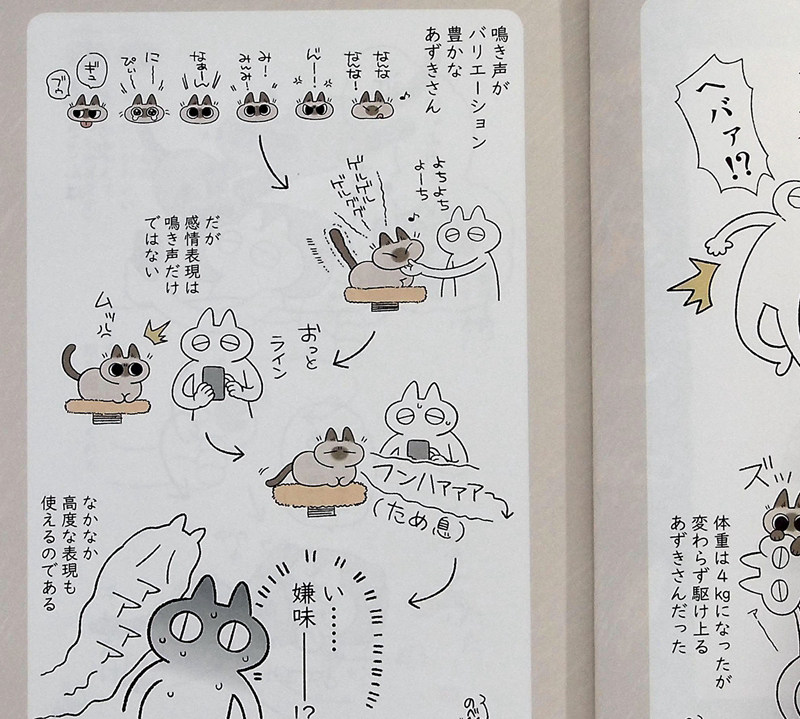 鳴き声が
バリエーション
豊かな
あずきさん
なんな
なんな!
ん〜!
み!
みぃみぃ!
なぁーん
に〜
ぴぃ〜
ギュ
ブゥ
よちよち
よーち
ゲルゲル
ゲルググ
だが
感情表現は
鳴き声だけ
ではない
おっと
ライン
ムッ
フンハァァァ
(ため息)
なかなか
高度な表現も
使えるのである
アァァ
い……
嫌味──!?
ヘバァ!?
ズッ
体重は4kgになったが
変わらず駆け上る
あずきさんだった